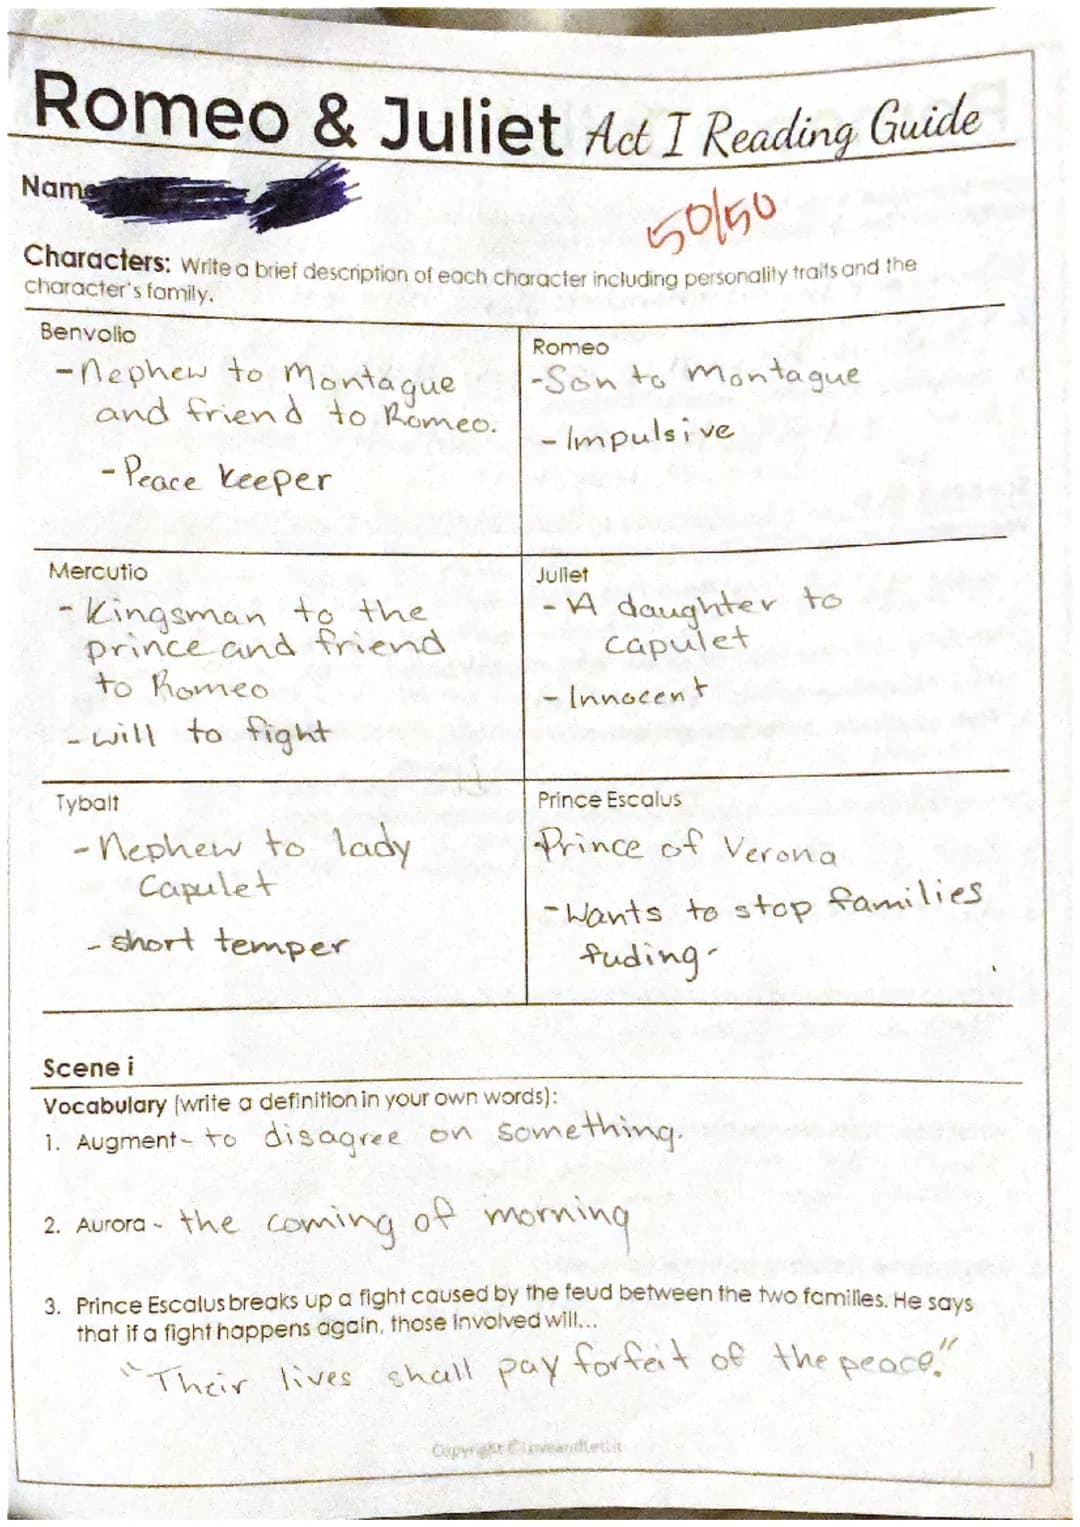 Romeo & Juliet Act I Reading Guide
Name
50/50
Characters: Write a brief description of each character including personality traits and the
character's family.
Benvolio
-Nephew to Montague
and friend to Romeo.
-Peace keeper
Romeo
-Son to Montague
-Impulsive
Mercutio
-Kingsman to the
prince and friend
to Romeo
-will to fight
Juliet
-A daughter to
capulet
-Innocent
Tybalt
-Nephew to lady
Capulet
-short temper
Prince Escalus
-Prince of Verona
-Wants to stop families
fuding-
Scene i
Vocabulary (write a definition in your own words):
1. Augment- to disagree on something.
2. Aurora - the coming of morning
3. Prince Escalus breaks up a fight caused by the feud between the two families. He says
that if a fight happens again, those involved will...
"Their lives shall pay forfeit of the peace."
1